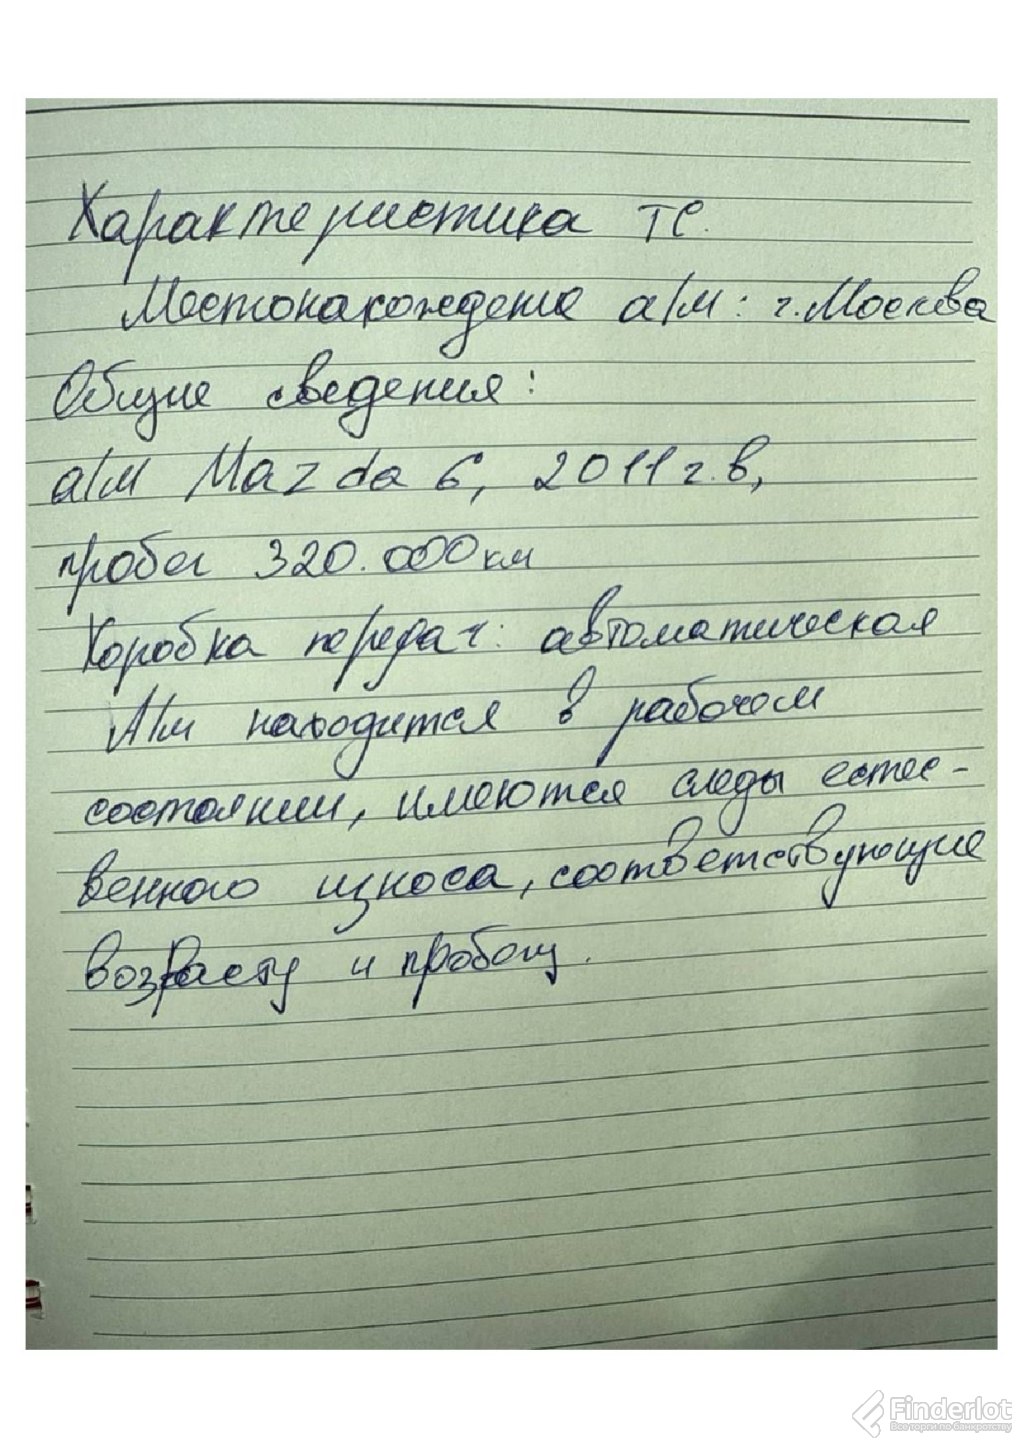 Характеристика ТС.
Местонахождение а/м: г. Москва
Общие сведения:
а/м Mazda 6, 2011 г.в,
пробег 320.000 км
Коробка передач: автоматическая
А/м находится в рабочем
состоянии, имеются следы естес-
венного износа, соответствующие
возрасту и пробегу.
Finderlot
Все торги по банкротству